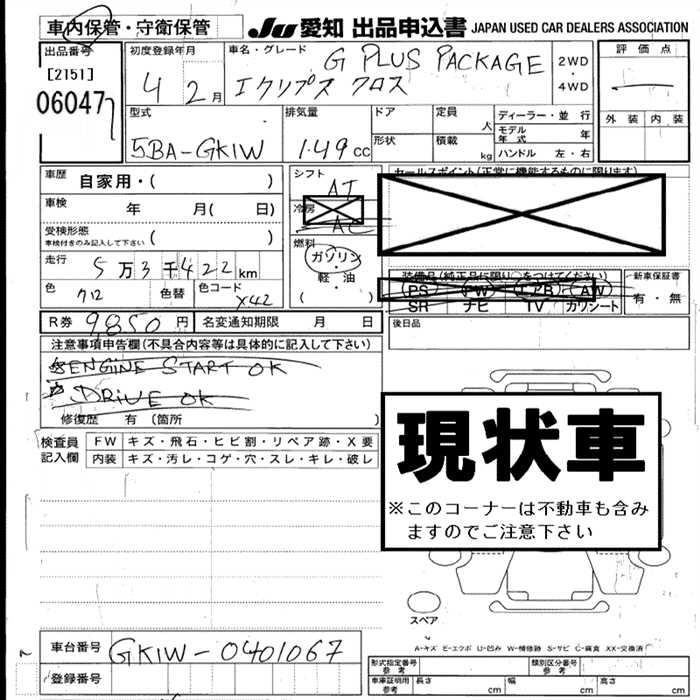 車内保管・守衛保管 Ju 愛知 出品申込書 JAPAN USED CAR DEALERS ASSOCIATION
出品番号 初度登録年月 車名・グレード G PLUS PACKAGE 2WD・4WD 評価点
[2151] 4 2月 エクリプス クロス
06047 外装 内装
型式 排気量 ドア 定員 人 ディーラー・並行
5BA-GK1W 1.49cc 形状 積載 kg モデル年式 年
ハンドル 左・右
車歴 自家用・( ) シフト AT セールスポイント(正常に機能するものに限ります)
車検 年 月( 日) 冷房 AC
受検形態 車検付きのみ記入して下さい ( ) 燃料 ガソリン・軽油 ( )
走行 5万3千422km 装備品(純正品に限り○をつけてください) 新車保証書
色 クロ 色替 色コード X42 PS PW エアB AW 有・無
SR ナビ TV カワシート
R券 9,850円 名変通知期限 月 日 後日品
注意事項申告欄(不具合内容等は具体的に記入して下さい)
ENGINE START OK
DRIVE OK
修復歴 有 (箇所 )
検査員記入欄 FW キズ・飛石・ヒビ割・リペア跡・X要
内装 キズ・汚レ・コゲ・穴・スレ・キレ・破レ
現状車
※このコーナーは不動車も含みますのでご注意下さい
スペア
A-キズ E-エクボ U-凹み W-補修跡 S-サビ C-腐食 XX-交換済
車台番号 GK1W-0401067
登録番号
形式指定番号 参考 類別区分番号 参考
車庫証明用 参考 長さ cm 幅 cm 高さ cm